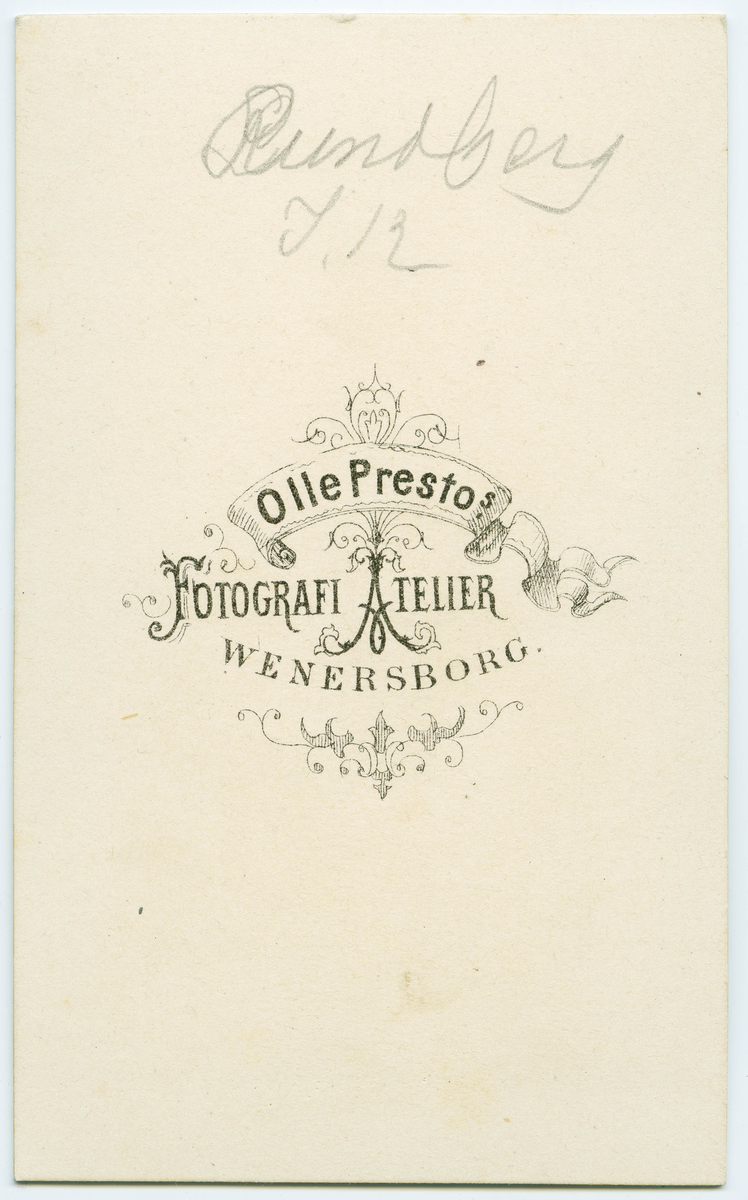 Lundberg
Olle Prestos
FOTOGRAFI ATELIER
WENERSBORG.